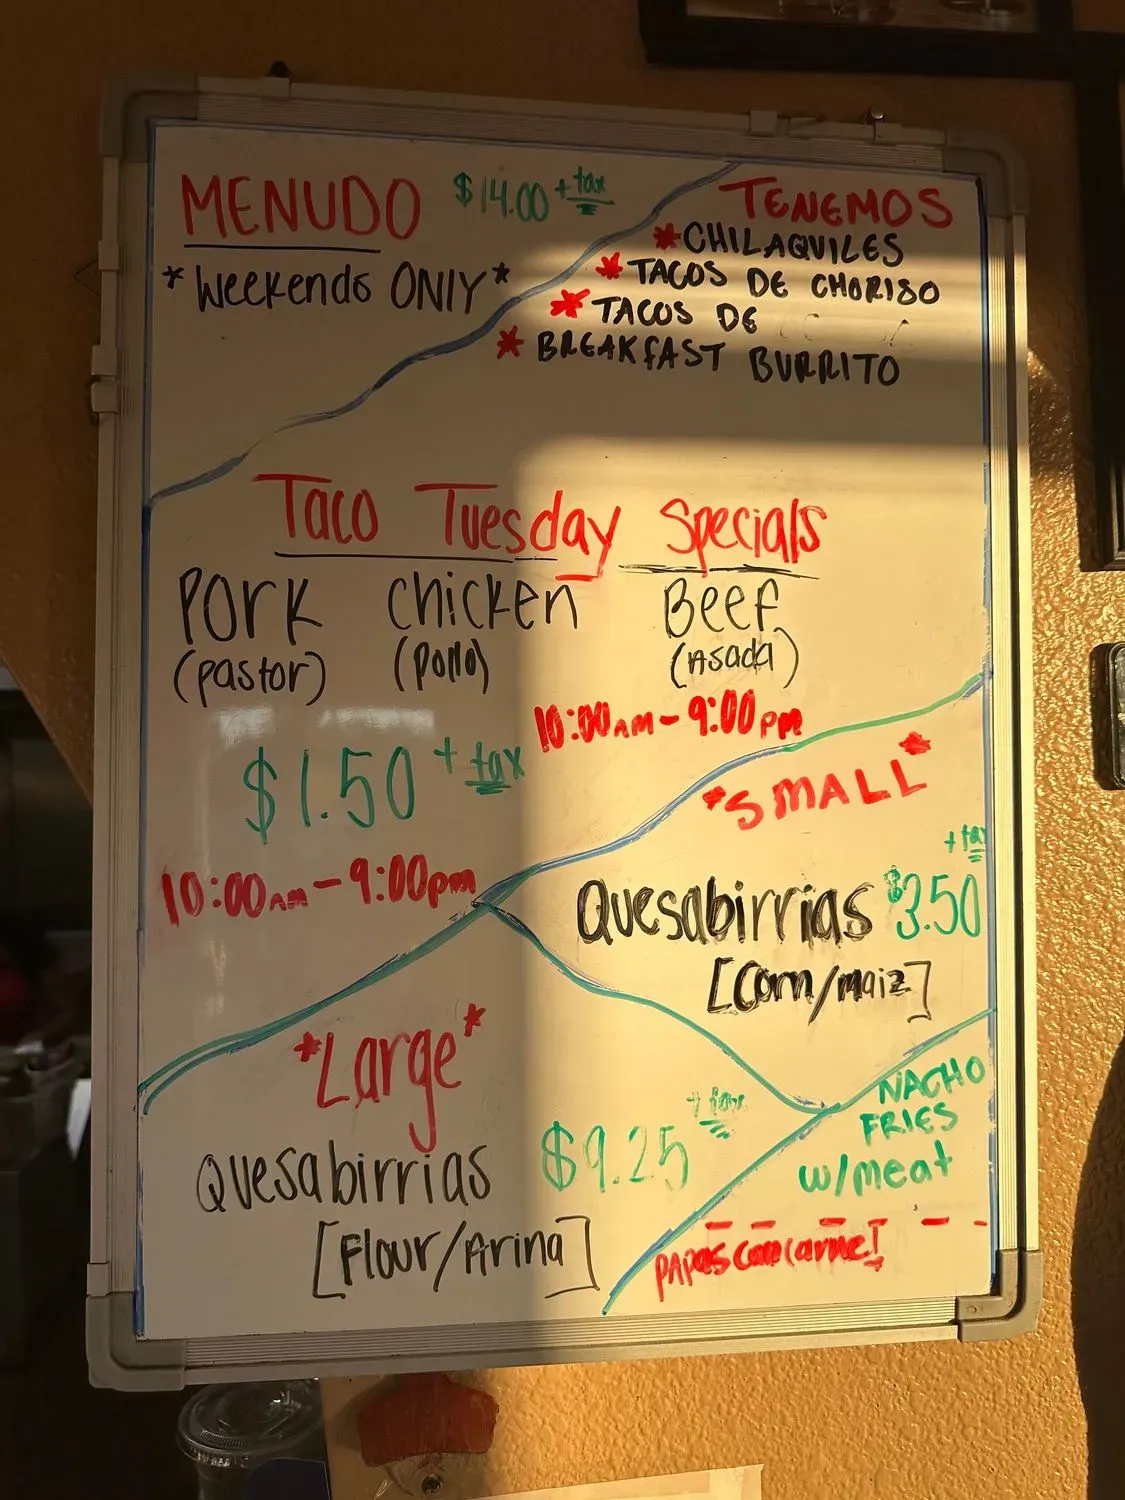 MENUDO $14.00 + tax
*Weekends ONlY*
TENEMOS
*CHILAQUILES
*TACOS DE CHORISO
*TACOS DE
*BREAKFAST BURRITO
Taco Tuesday Specials
Pork Chicken Beef
(pastor) (pollo) (Asada)
10:00AM - 9:00PM
$1.50 + tax
10:00AM - 9:00pm
*SMALL*
+ tax
Quesabirrias $3.50
[Corn/maiz]
*Large*
+ tax
Quesabirrias $9.25
[Flour/Arina]
NACHO
FRIES
w/meat
PAPAS con carne!